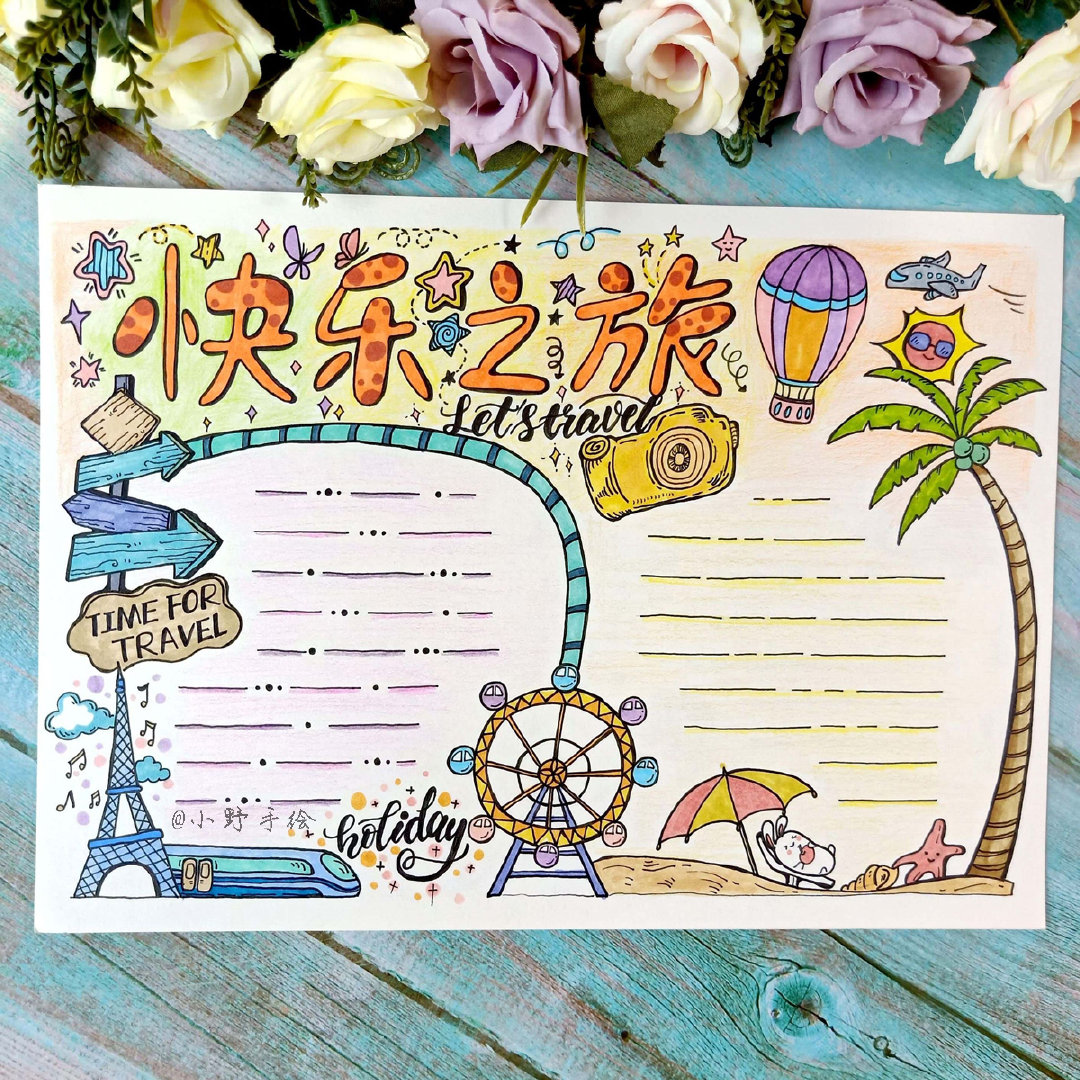 快乐之旅
Let's travel
TIME FOR
TRAVEL
@小野手绘
holiday